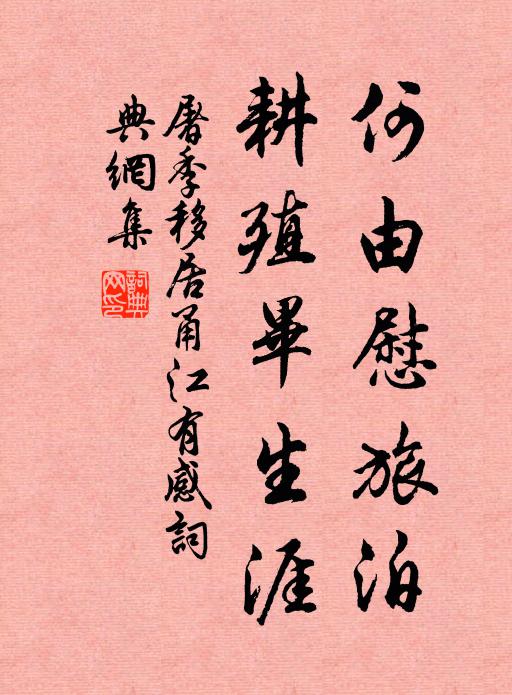 何由慰旅泊
耕殖畢生涯
屠季移居甬江有感詞
典網集
詞典網印